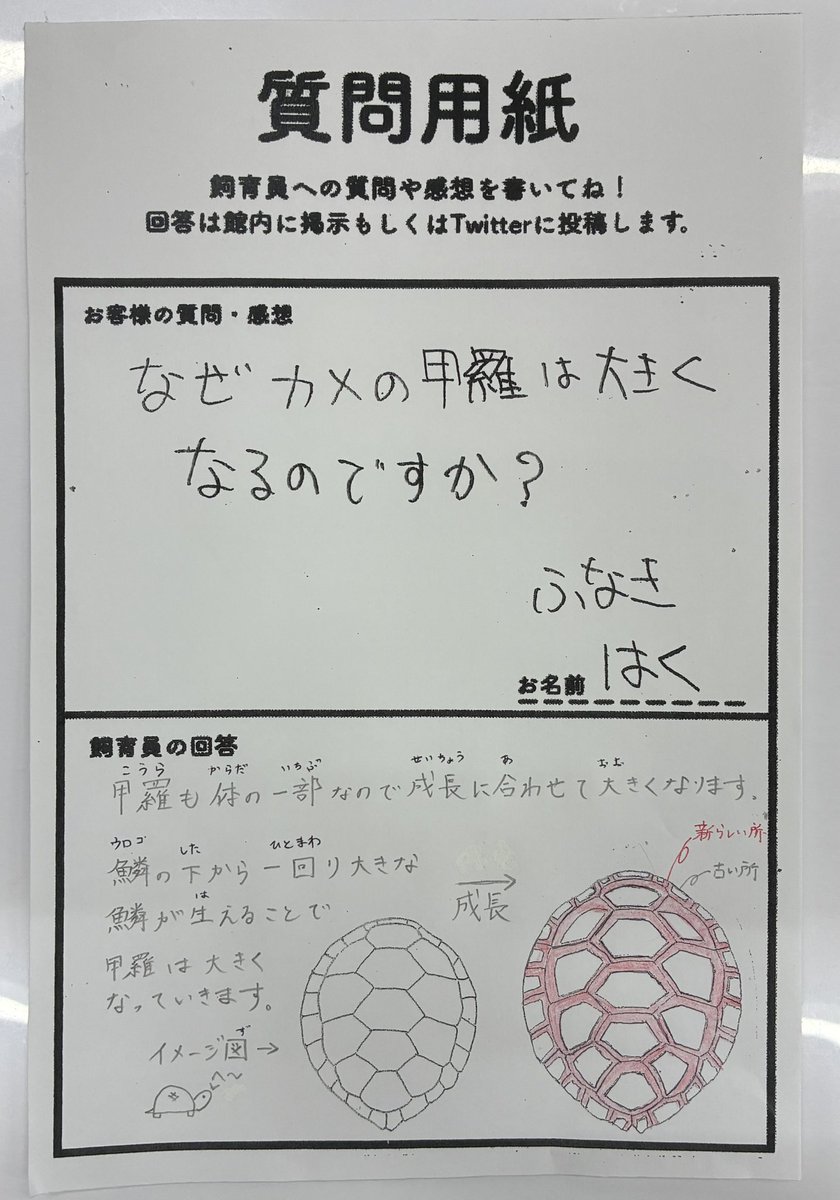 質問用紙
飼育員への質問や感想を書いてね！
回答は館内に掲示もしくはTwitterに投稿します。
お客様の質問・感想
なぜカメの甲羅は大きく
なるのですか？
ふなき
はく
お名前
飼育員の回答
こうら からだ いちぶ せいちょう あ おお
甲羅も体の一部なので成長に合わせて大きくなります。
ウロコ した ひとまわ
鱗の下から一回り大きな
は
鱗が生えることで
甲羅は大きく
なっていきます。
ず
イメージ図→
成長
新らしい所
古い所
へ～